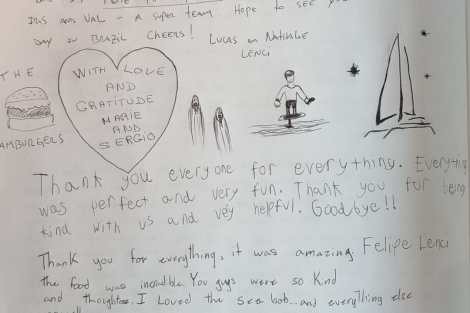 INS and VAL - A super team Hope to see you
DAY in BRAZIL Cheers! Lucas and Nathalie
LENCI
THE
HAMBURGERS
WITH LOVE
AND
GRATITUDE
MARIE
AND
SERGIO
Thank you everyone for everything. Everything
was perfect and very fun. Thank you for being
kind with us and very helpful. Goodbye!!
Thank you for everything, it was amazing Felipe Lenci
the food was incredible. You guys were so kind
and thoughtful. I Loved the sea bob...and everything else